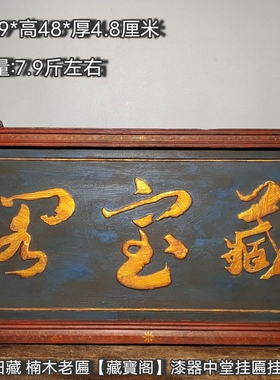 9*高48*厚4.8厘米
量:7.9斤左右
藏寶閣
旧藏 楠木老匾【藏寶阁】漆器中堂挂匾挂